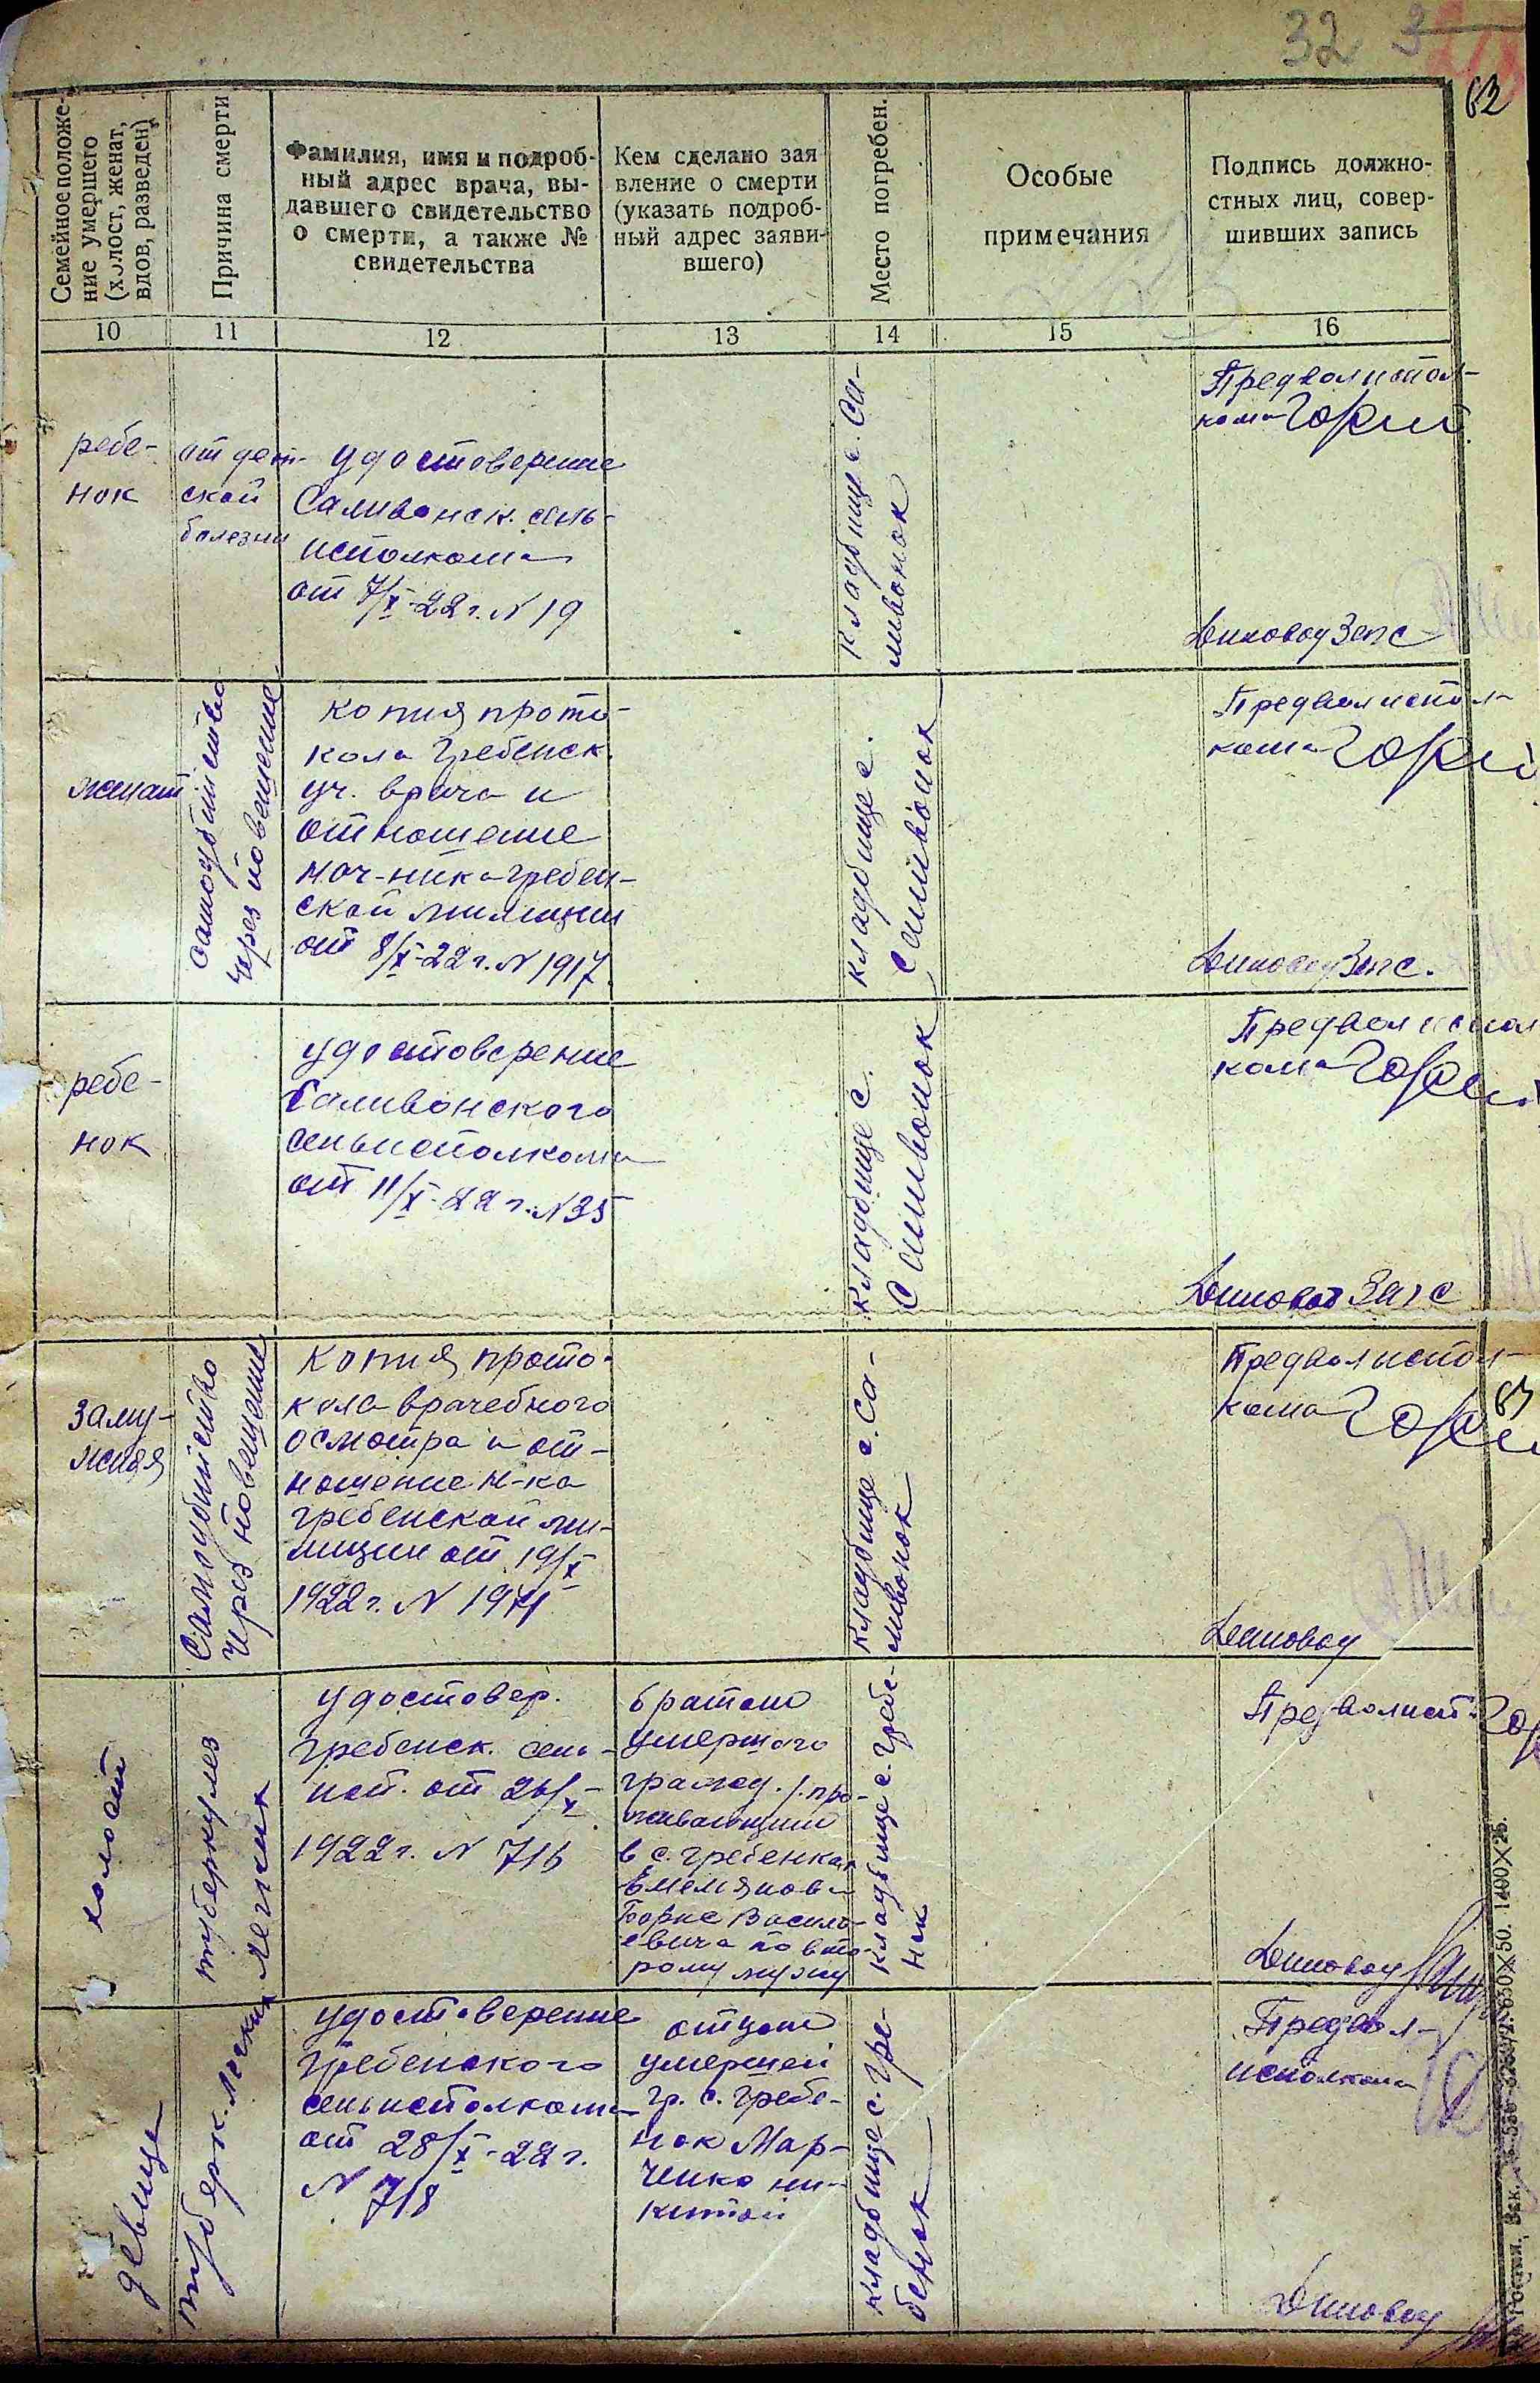 32
62
Семейное положе-
ние умершего
(холост, женат,
вдов, разведен)
Причина смерти
Фамилия, имя и подроб-
ный адрес врача, вы-
давшего свидетельство
о смерти, а также №
свидетельства
Кем сделано зая
вление о смерти
(указать подроб-
ный адрес заяви-
вшего)
Место погребен.
Особые
примечания
Подпись должно-
стных лиц, совер-
шивших запись
10
11
12
13
14
15
16
ребе-
нок
от дет-
ской
болезни
удостоверение
Саливонск. сель-
исполкома
от 7/X-22 г. N 19
кладбище с. Са-
ливонок
Предволиспол-
кома
Деловод Загс
женат
самоубийство
через повешение
копия прото-
кола Гребенск.
уч. врача и
отношение
нач-ника гребен-
ской милиции
от 8/X-22 г. N 1917
кладбище с.
Саливонок
Предволиспол-
кома
Деловод Загс.
ребе-
нок
удостоверение
Саливонского
сельисполкома
от 11/X-22 г. N 35
кладбище с.
Саливонок
Предволиспол
кома
Деловод Загс
заму-
жняя
самоубийство
через повешение
копия прото-
кола врачебного
осмотра и от-
ношение н-ка
гребенской ми-
лиции от 19/X
1922 г. N 1971
кладбище с. Са-
ливонок
Предволиспол-
кома
63
Деловод
холост
туберкулез
легких
удостовер.
гребенск. сель-
исп. от 26/X
1922 г. N 716
братом
умершего
гражд. про-
живающим
в с. гребенках
Емельянова
Борис Василь-
евича по вто-
рому мужу
кладбище с. Гребе-
нок
Предволисп.
Деловод
девица
туберк. легких
удостоверение
Гребенского
сельисполкома
от 28/X-22 г.
N 718
отцом
умершей
гр. с. Гребе-
нок Мар-
ченко Ни-
китой
кладбище с. Гре-
бенок
Предвол-
исполкома
Деловод